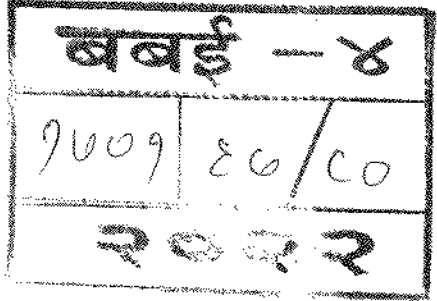 बबई - ४
१७०१ ६७/८०
२०२२